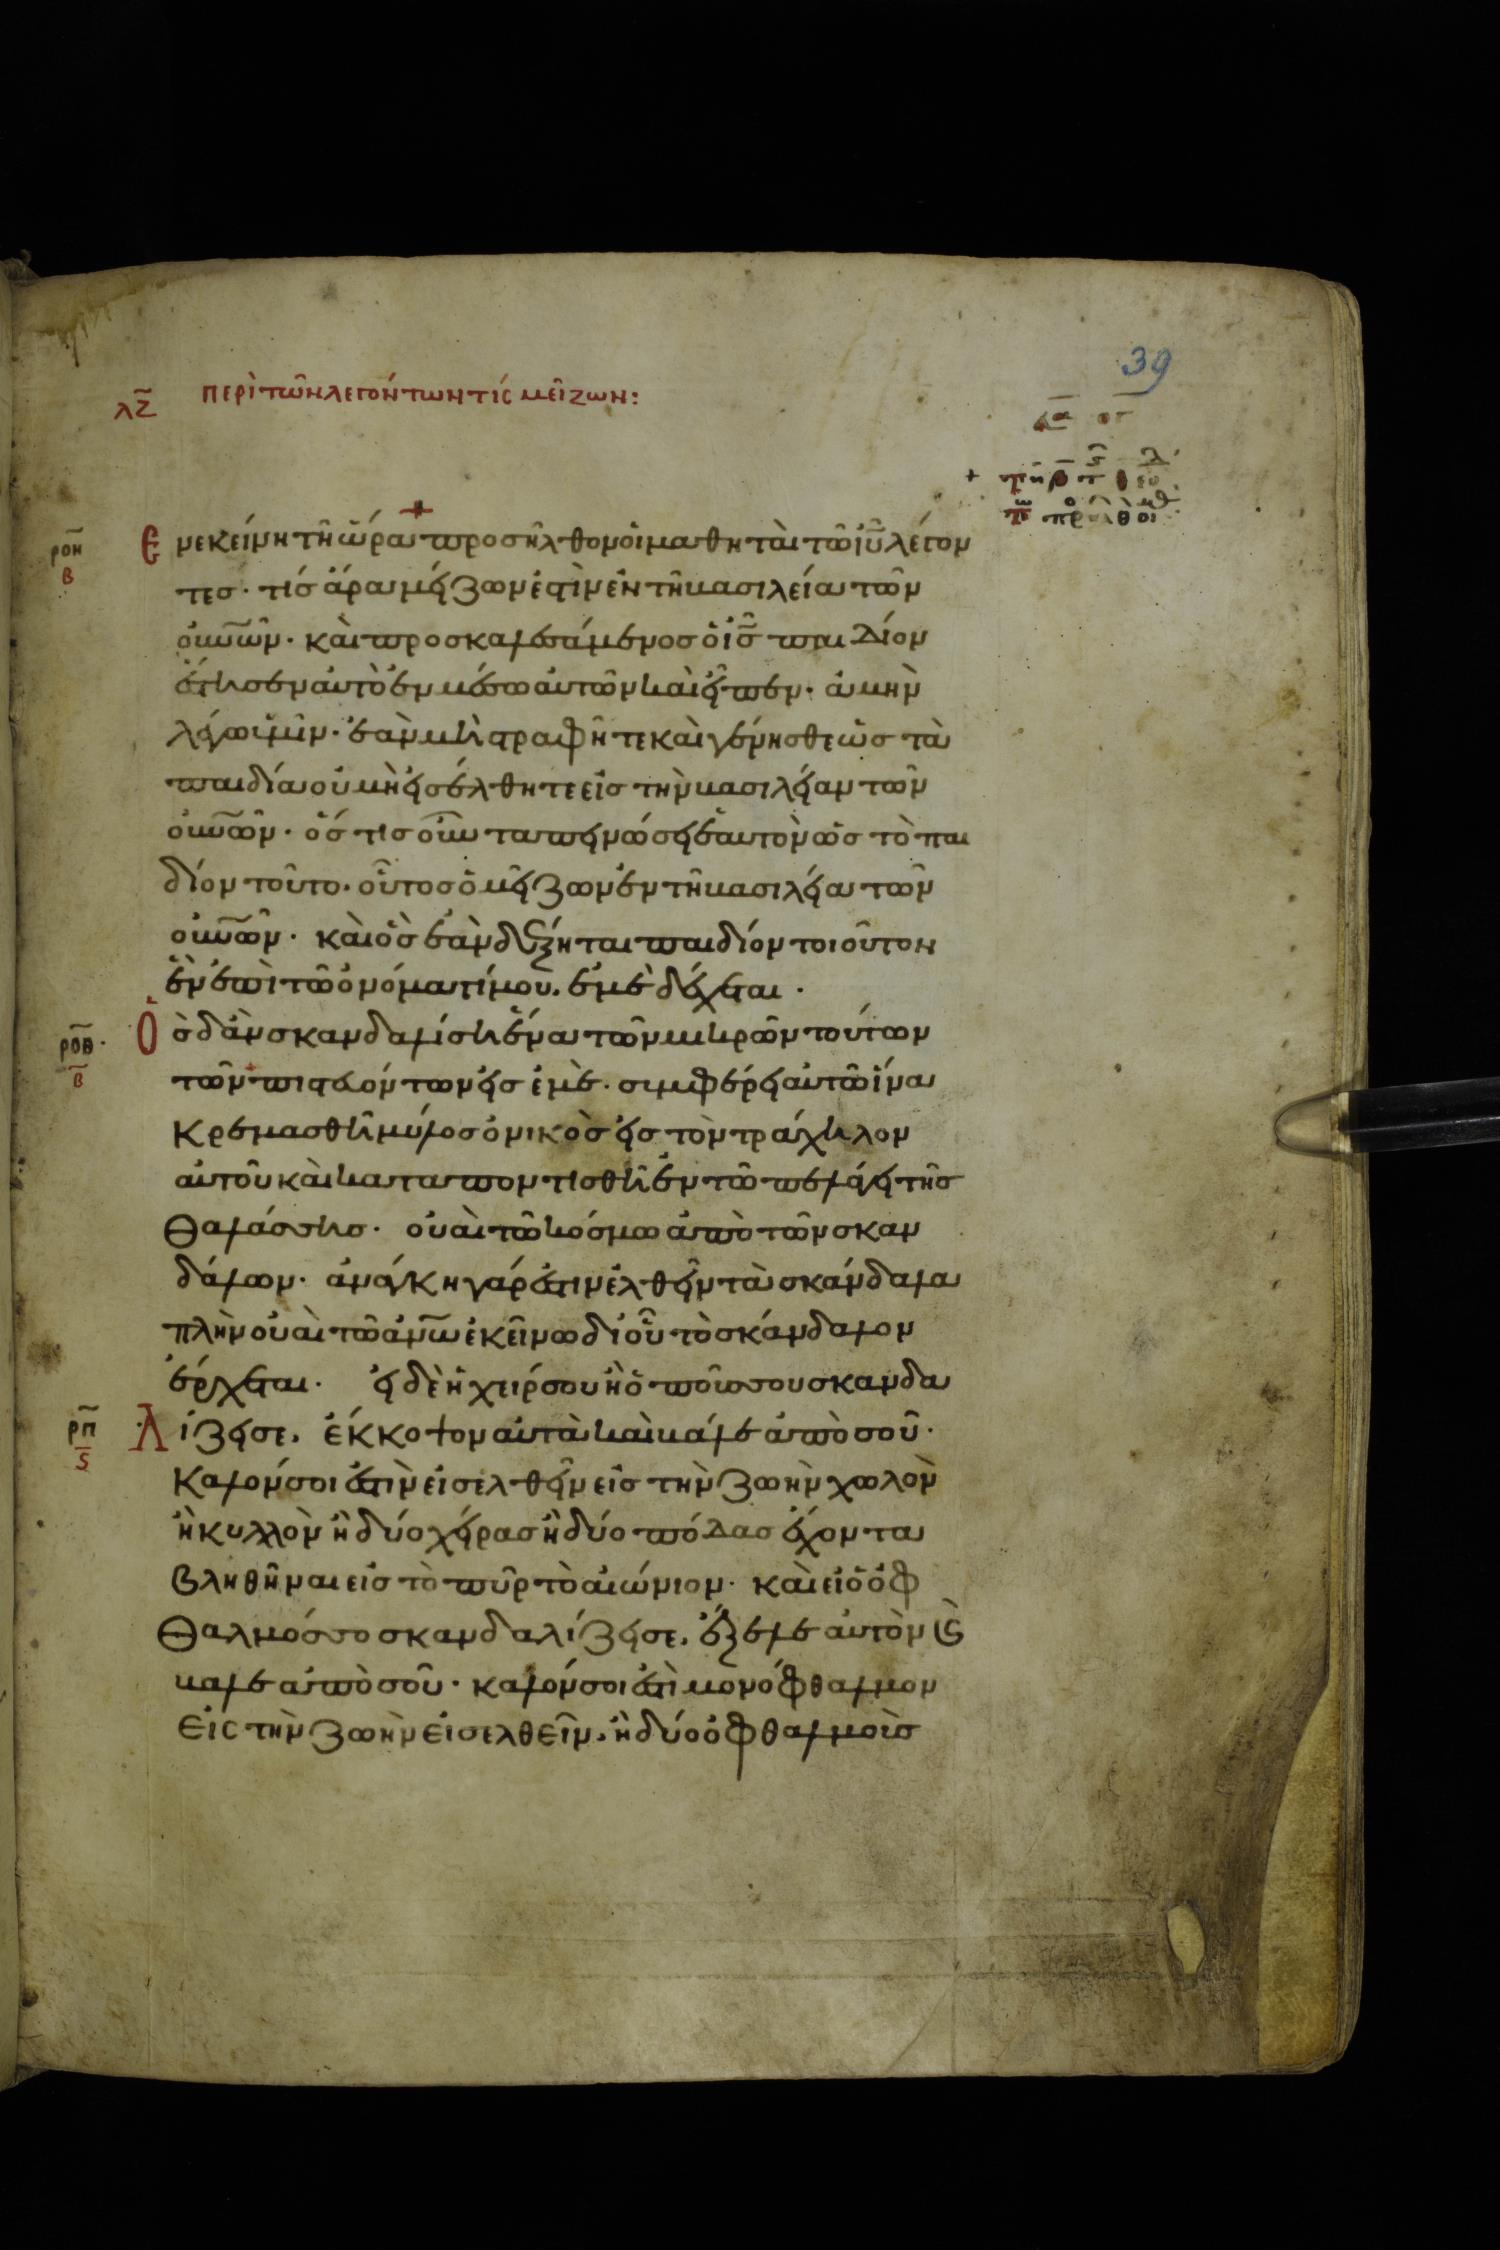 39
λζ περὶ τῶν λεγόντων τίς μείζων:
ροη β Ἐν ἐκείνη τῆ ὥρα προσῆλθον οἱ μαθηταὶ τῶ ἰῦ λέγον
τες· τίς ἄρα μείζων ἐστὶν ἐν τῆ βασιλεία τῶν
οὐνῶν· καὶ προσκαλεσάμενος ὁ ἰς παιδίον
ἔστησεν αὐτὸ ἐν μέσω αὐτῶν καὶ εἶπεν· ἀμὴν
λέγω ὑμῖν· ἐὰν μὴ στραφῆτε καὶ γένησθε ὡς τὰ
παιδία οὐ μὴ εἰσέλθητε εἰς τὴν βασιλείαν τῶν
οὐνῶν· ὅστις οὖν ταπεινώσει ἑαυτὸν ὡς τὸ παι
δίον τοῦτο· οὗτος ὁ μείζων ἐν τῆ βασιλεία τῶν
οὐνῶν· καὶ ὃς ἐὰν δέξηται παιδίον τοιοῦτον
ἓν ἐπὶ τῶ ὀνόματί μου, ἐμὲ δέχεται·
ροθ β Ὃς δ' ἂν σκανδαλίση ἕνα τῶν μικρῶν τούτων
τῶν πιστευόντων εἰς ἐμὲ· συμφέρει αὐτῶ ἵνα
κρεμασθῆ μύλος ὀνικὸς εἰς τὸν τράχηλον
αὐτοῦ καὶ καταποντισθῆ ἐν τῶ πελάγει τῆς
θαλάσσης· οὐαὶ τῶ κόσμω ἀπὸ τῶν σκαν
δάλων· ἀνάγκη γάρ ἐστιν ἐλθεῖν τὰ σκάνδαλα
πλὴν οὐαὶ τῶ ἀνῶ ἐκείνω δι' οὗ τὸ σκάνδαλον
ἔρχεται· εἰ δὲ ἡ χείρ σου ἢ ὁ ποῦς σου σκανδα
ρπ ς λίζει σε, ἔκκοψον αὐτὰ καὶ βάλε ἀπὸ σοῦ·
καλόν σοι ἐστὶν εἰσελθεῖν εἰς τὴν ζωὴν χωλὸν
ἢ κυλλὸν ἢ δύο χεῖρας ἢ δύο πόδας ἔχοντα
βληθῆναι εἰς τὸ πῦρ τὸ αἰώνιον· καὶ εἰ ὁ ὀφ
θαλμός σο σκανδαλίζει σε, ἔξελε αὐτὸν καὶ
βάλε ἀπὸ σοῦ· καλόν σοι ἐστὶ μονόφθαλμον
εἰς τὴν ζωὴν εἰσελθεῖν, ἢ δύο ὀφθαλμοὺς